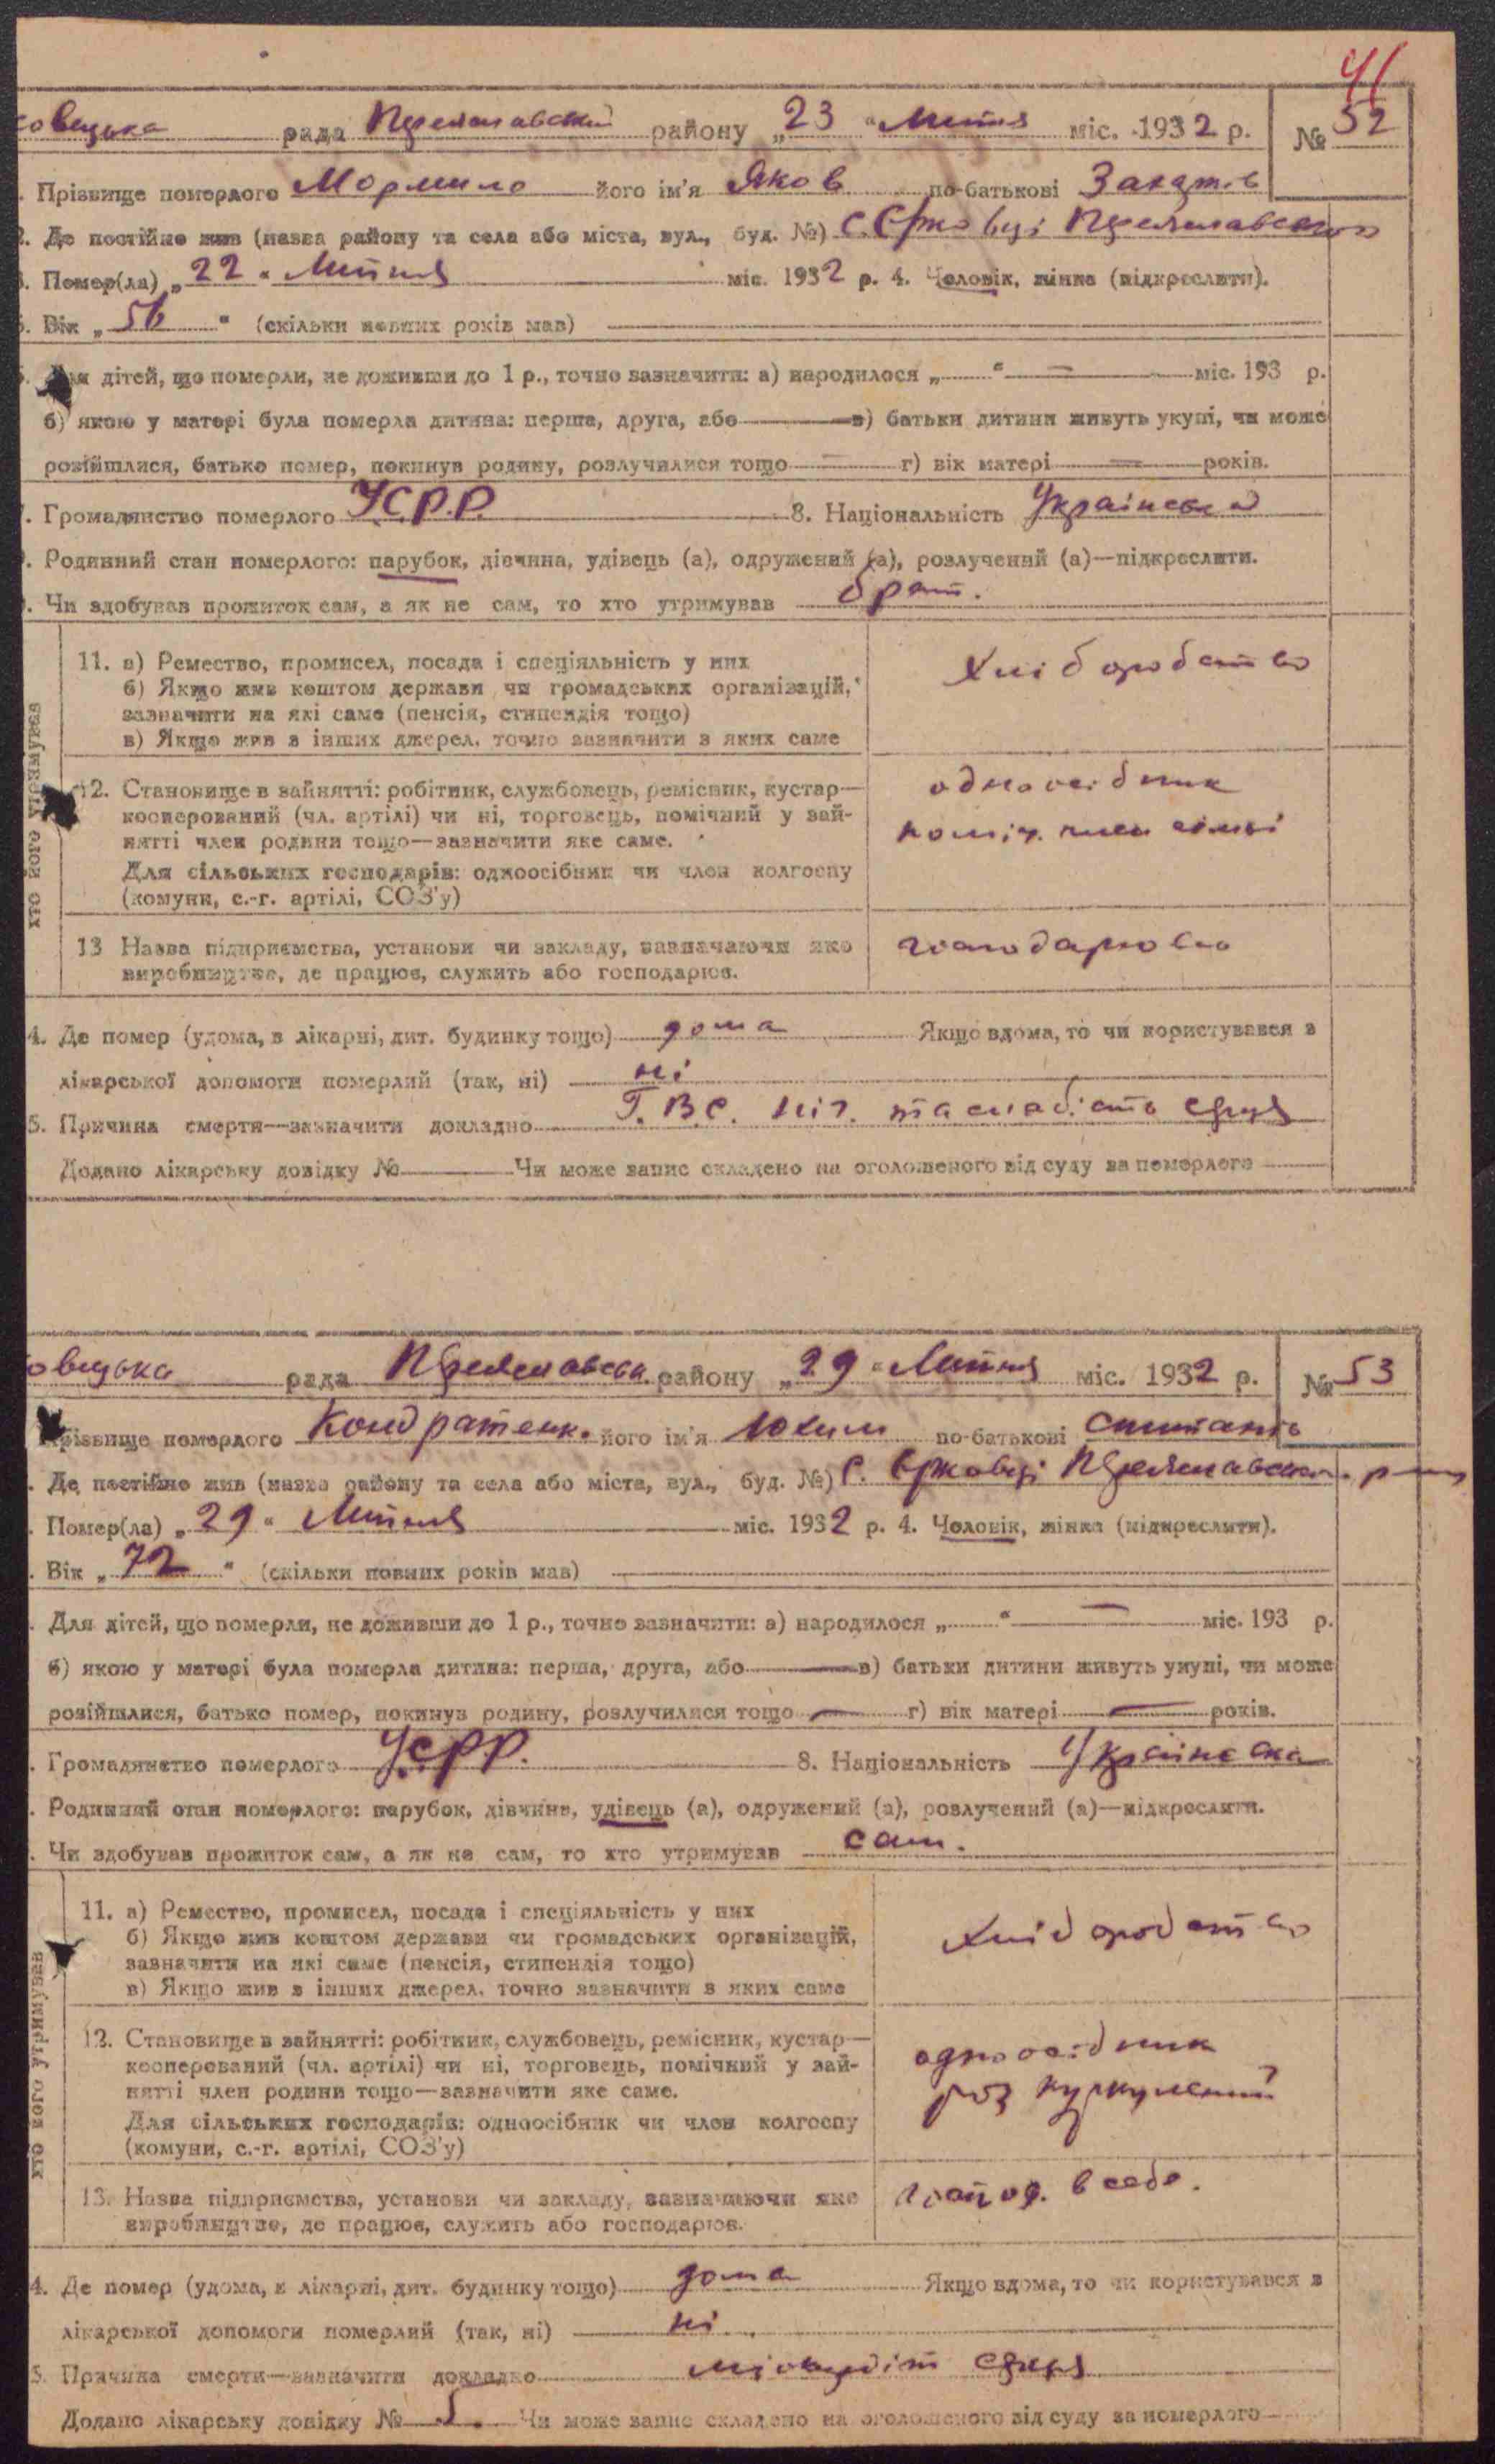 41
овецька рада Переяславський району „23 “ Липня міс. 1932 р. № 52
Прізвище померлого Мормило його ім'я Яков по-батькові
2. Де постійно жив (назва району та села або міста, вул., буд. №) с. Єрковці Переяславського
3. Помер(ла) „ 22 “ Липня міс. 1932 р. 4. Чоловік, жінка (підкреслити).
5. Вік „ 56 “ (скільки повних років мав)
Для дітей, що померли, не доживши до 1 р., точно зазначити: а) народилося „ “ — міс. 193 р.
б) якою у матері була померла дитина: перша, друга, або — в) батьки дитини живуть укупі, чи може
розійшлися, батько помер, покинув родину, розлучилися тощо — г) вік матері — років.
7. Громадянство померлого УСРР. 8. Національність
. Родинний стан померлого: парубок, дівчина, удівець (а), одружений (а), розлучений (а)—підкреслити.
. Чи здобував прожиток сам, а як не сам, то хто утримував брат.
хто його утримував
11. а) Ремество, промисел, посада і спеціяльність у них Хліборобство
б) Якщо жив коштом держави чи громадських організацій,
зазначити на які саме (пенсія, стипендія тощо)
в) Якщо жив з інших джерел, точно зазначити з яких саме
12. Становище в зайнятті: робітник, службовець, ремісник, кустар— одноосібник
кооперований (чл. артілі) чи ні, торговець, помічний у зай- поміч. член сімьі
нятті член родини тощо—зазначити яке саме.
Для сільських господарів: одноосібник чи член колгоспу
(комуни, с.-г. артілі, СОЗ'у)
13 Назва підприємства, установи чи закладу, зазначаючи яке
виробництво, де працює, служить або господарює.
4. Де помер (удома, в лікарні, дит. будинку тощо) дома Якщо вдома, то чи користувався з
лікарської допомоги померлий (так, ні) ні
5. Причина смерти—зазначити докладно Т.В.С. лег. та слабість серця
Додано лікарську довідку № Чи може запис складено на оголошеного від суду за померлого
овецька рада Переяславськ. району „ 29 “ Липня міс. 1932 р. № 53
Прізвище померлого Кондратенк. його ім'я Юхим по-батькові
. Де постійно жив (назва району та села або міста, вул., буд. №) с. Єрковці Переяславськ.
. Помер(ла) „ 29 “ Липня міс. 1932 р. 4. Чоловік, жінка (підкреслити).
. Вік „ 72 “ (скільки повних років мав)
. Для дітей, що померли, не доживши до 1 р., точно зазначити: а) народилося „ “ — міс. 193 р.
б) якою у матері була померла дитина: перша, друга, або — в) батьки дитини живуть укупі, чи може
розійшлися, батько помер, покинув родину, розлучилися тощо — г) вік матері — років.
. Громадянство померлого УСРР. 8. Національність Українська
. Родинний стан померлого: парубок, дівчина, удівець (а), одружений (а), розлучений (а)—підкреслити.
. Чи здобував прожиток сам, а як не сам, то хто утримував сам.
хто його утримував
11. а) Ремество, промисел, посада і спеціяльність у них Хліборобство
б) Якщо жив коштом держави чи громадських організацій,
зазначити на які саме (пенсія, стипендія тощо)
в) Якщо жив з інших джерел, точно зазначити з яких саме
12. Становище в зайнятті: робітник, службовець, ремісник, кустар— одноосібник
кооперований (чл. артілі) чи ні, торговець, помічний у зай- роз куркулений
нятті член родини тощо—зазначити яке саме.
Для сільських господарів: одноосібник чи член колгоспу
(комуни, с.-г. артілі, СОЗ'у)
13. Назва підприємства, установи чи закладу, зазначаючи яке господ. в себе.
виробництво, де працює, служить або господарює.
4. Де помер (удома, в лікарні, дит. будинку тощо) дома Якщо вдома, то чи користувався з
лікарської допомоги померлий (так, ні) ні.
5. Причина смерти—зазначити докладно міокардіт серця
Додано лікарську довідку № Чи може запис складено на оголошеного від суду за померлого